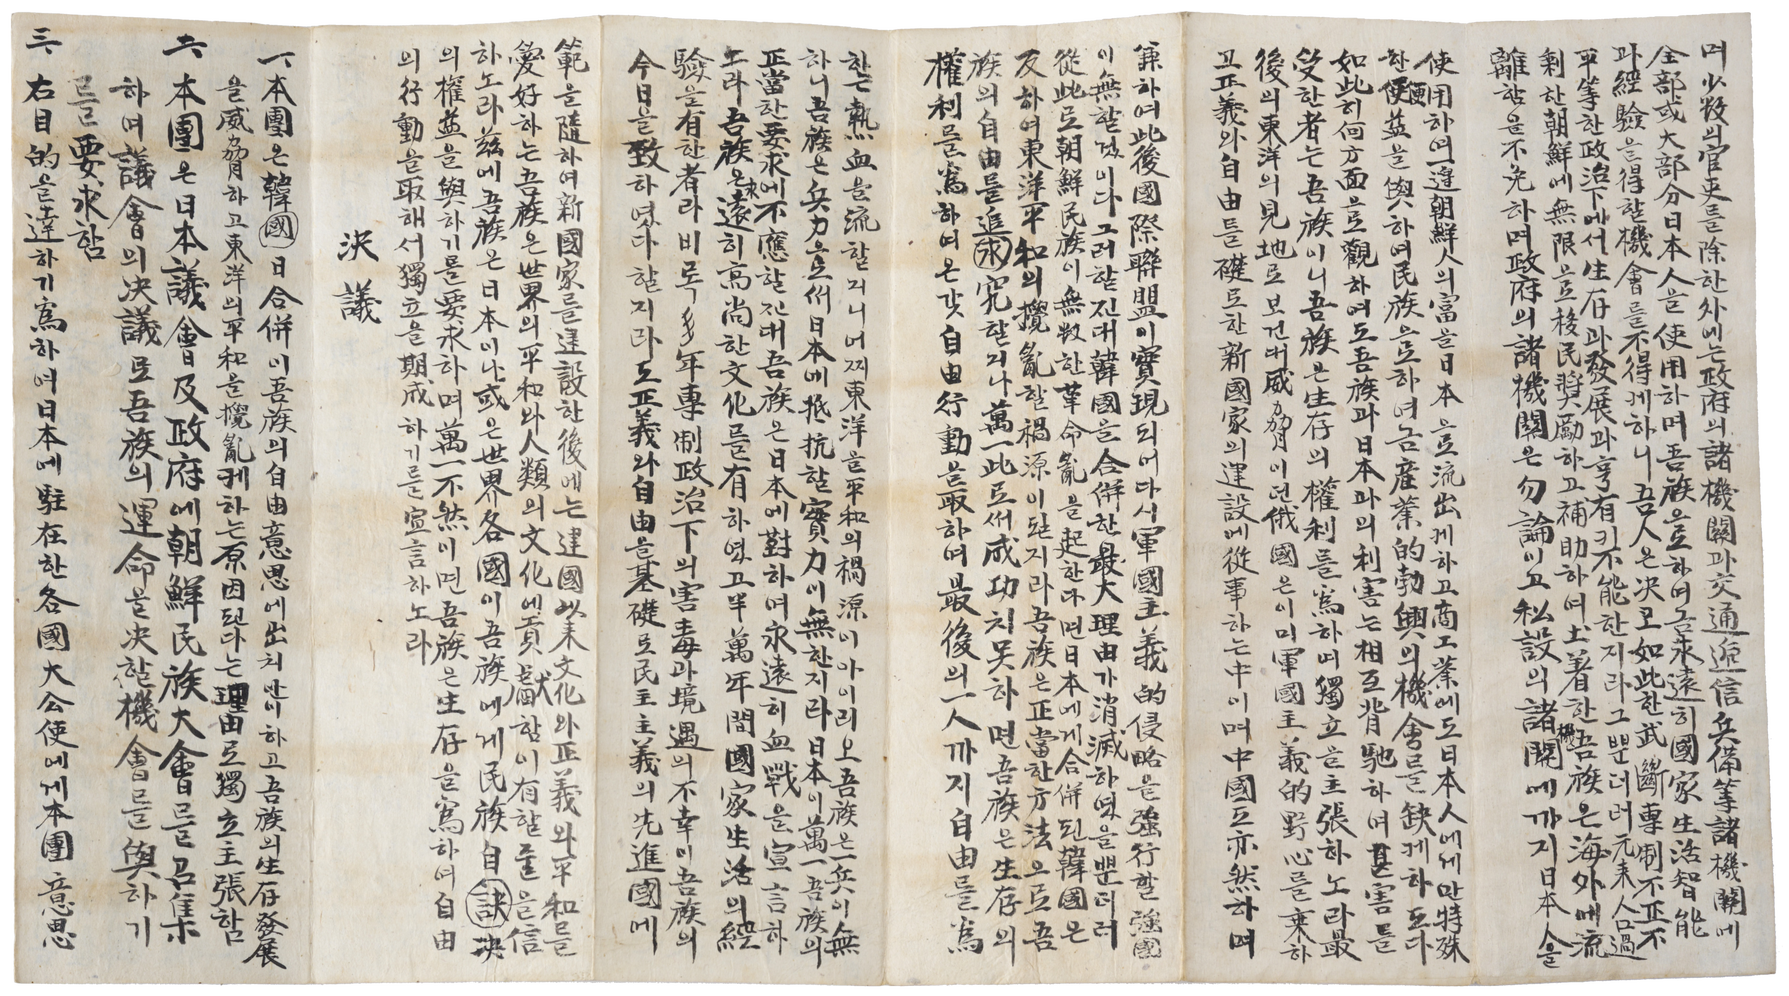 며少數의官吏를除한外에는政府의諸機關과交通遞信兵備等諸機關에
全部或大部分日本人을使用하며吾族으로하여금永遠히國家生活智能
과經驗을得할機會를不得케하니吾人은決코如此한武斷專制不正不
平等한政治下에서生存과發展과享有키不能한지라그뿐더러元來人口過
剩한朝鮮에無限으로移民獎勵하고補助하여土着한吾族은海外에流
離함을不免하며政府의諸機關은勿論이고私設의諸機關에까지日本人을
使用하여一邊朝鮮人의富을日本으로流出케하고商工業에도日本人에게만特殊
한便益을與하여民族으로하여금産業的勃興의機會를缺케하도다
如此히何方面으로觀하여도吾族과日本과의利害는相互背馳하며其害를
受한者는吾族이니吾族은生存의權利를爲하며獨立을主張하노라最
後의東洋의見地로보건대威脅이던俄國은이미軍國主義的野心를棄하
고正義와自由를礎로한新國家의建設에從事하는中이며中國亦然하며
兼하여此後國際聯盟이實現되며다시軍國主義的侵略을強行할強國
이無할것이다그러할진대韓國을合併한最大理由가消滅하였을뿐더러
從此로朝鮮民族이無數한革命亂을起한다면日本에게合併된韓國은
反하여東洋平和의攪亂할禍源이된지라吾族은正當한方法으로吾
族의自由를追求究할지나萬一此로써成功치못하면吾族은生存의
權利를爲하여온갓自由行動을取하여最後의一人까지自由를爲
한는熱血을流할지니어찌東洋을平和의禍源이아이리오吾族은一兵이無
하니吾族은兵力으로써日本에抵抗할實力이無한지라日本이萬一吾族의
正當한要求에不應할진대吾族은日本에對하여永遠히血戰을宣言하
노라吾族은永遠히高尙한文化를有하였고半萬年間國家生活의經
驗을有한者라비록多年專制政治下의害毒과境遇의不幸이吾族의
今日을致하였다할지라도正義와自由을基礎로民主主義의先進國에
範을隨하여新國家를建設한後에는建國以來文化와正義와平和를
愛好하는吾族은世界의平和와人類의文化에貢獻함이有할를을信
하노라玆에吾族은日本이나或은世界各國이吾族에게民族自訣決
의權益을與하기를要求하며萬一不然이면吾族은生存을爲하여自由
의行動을取해서獨立을期成하기를宣言하노라
決議
一、本團은韓國日合併이吾族의自由意思에出치안이하고吾族의生存發展
을威脅하고東洋의平和을攪亂케하는原因된다는理由로獨立主張함
二、本團은日本議會及政府에朝鮮民族大會를召集
하며議會의决議로吾族의運命을决할機會를與하기
를要求함
三、右目的을達하기爲하여日本에駐在한各國大公使에게本團意思